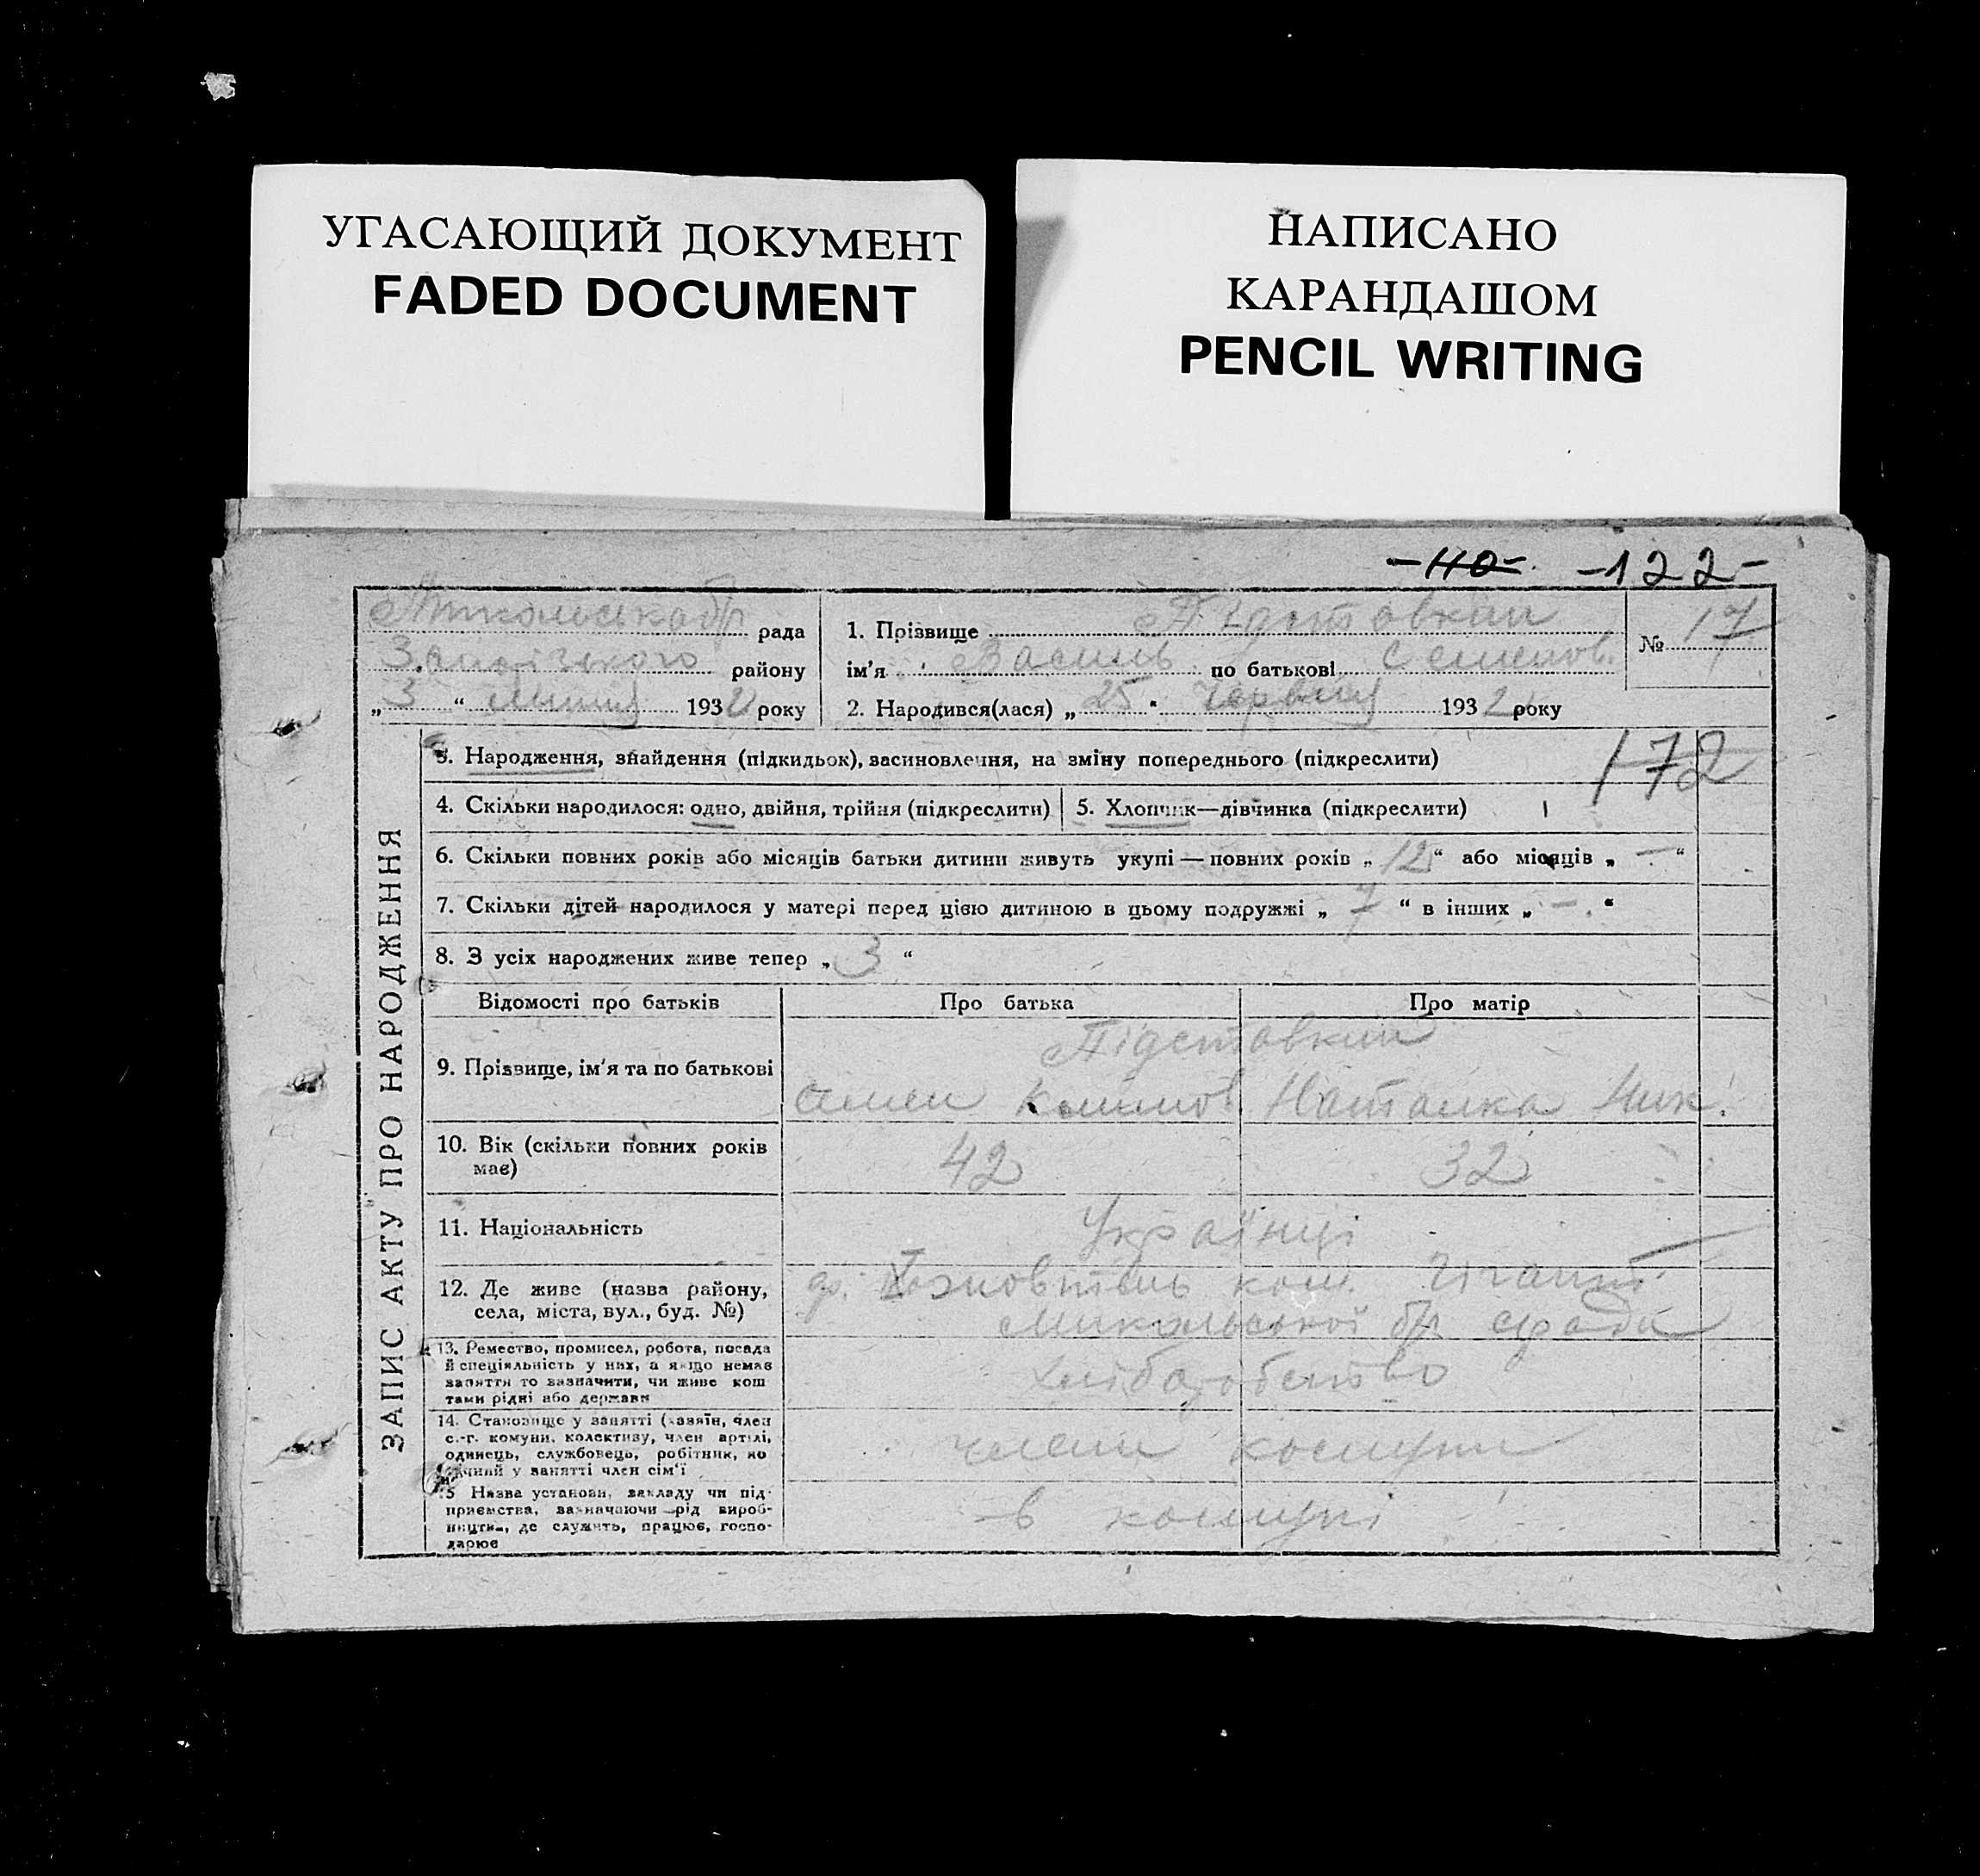 УГАСАЮЩИЙ ДОКУМЕНТ
FADED DOCUMENT
НАПИСАНО
КАРАНДАШОМ
PENCIL WRITING
-110-. -122-
рада
району
„ 3 “ Липня 1932 року
1. Прізвище Підставкин
ім’я Василь по батькові Семенов.
2. Народився(лася) „ 25 " Червня 1932 року
№ 17
172
ЗАПИС АКТУ ПРО НАРОДЖЕННЯ
3. Народження, знайдення (підкидьок), засиновлення, на зміну попереднього (підкреслити)
4. Скільки народилося: одно, двійня, трійня (підкреслити) 5. Хлопчик—дівчинка (підкреслити)
6. Скільки повних років або місяців батьки дитини живуть укупі — повних років „ 12 “ або місяців „ — “
7. Скільки дітей народилося у матері перед цією дитиною в цьому подружжі „ 7 “ в інших „ — “
8. З усіх народжених живе тепер „ 3 “
Відомості про батьків Про батька Про матір
9. Прізвище, ім’я та по батькові
Підставкин
Семен Климов. Наталка Ник.
10. Вік (скільки повних років
має)
42 32
11. Національність
Українці
12. Де живе (назва району,
села, міста, вул., буд. №)
ком. Гігант
Микольської с/ради
13. Ремество, промисел, робота, посада
й спеціяльність у них, а якщо немає
заняття то зазначити, чи живе кош
тами рідні або держави
хліборобство
14. Становище у занятті (хазяїн, член
с.-г. комуни, колективу, член артілі,
одинець, службовець, робітник, по
мічний у занятті член сім’ї
члени комуни
15 Назва установи, закладу чи під-
приємства, зазначаючи рід вироб-
ництва, де служить, працює, госпо-
дарює
в комуні